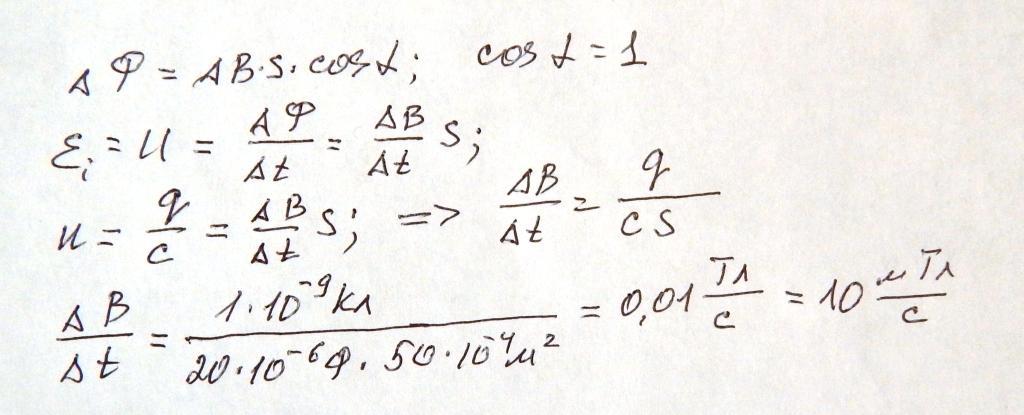 ΔΦ = ΔB·S·cosα; cosα = 1
ℰᵢ = U = ΔΦ/Δt = ΔB/Δt S;
U = q/C = ΔB/Δt S; => ΔB/Δt = q/CS
ΔB/Δt = 1·10⁻⁹Кл / 20·10⁻⁶Ф·50·10⁻⁴м² = 0,01 Тл/с = 10 мТл/с